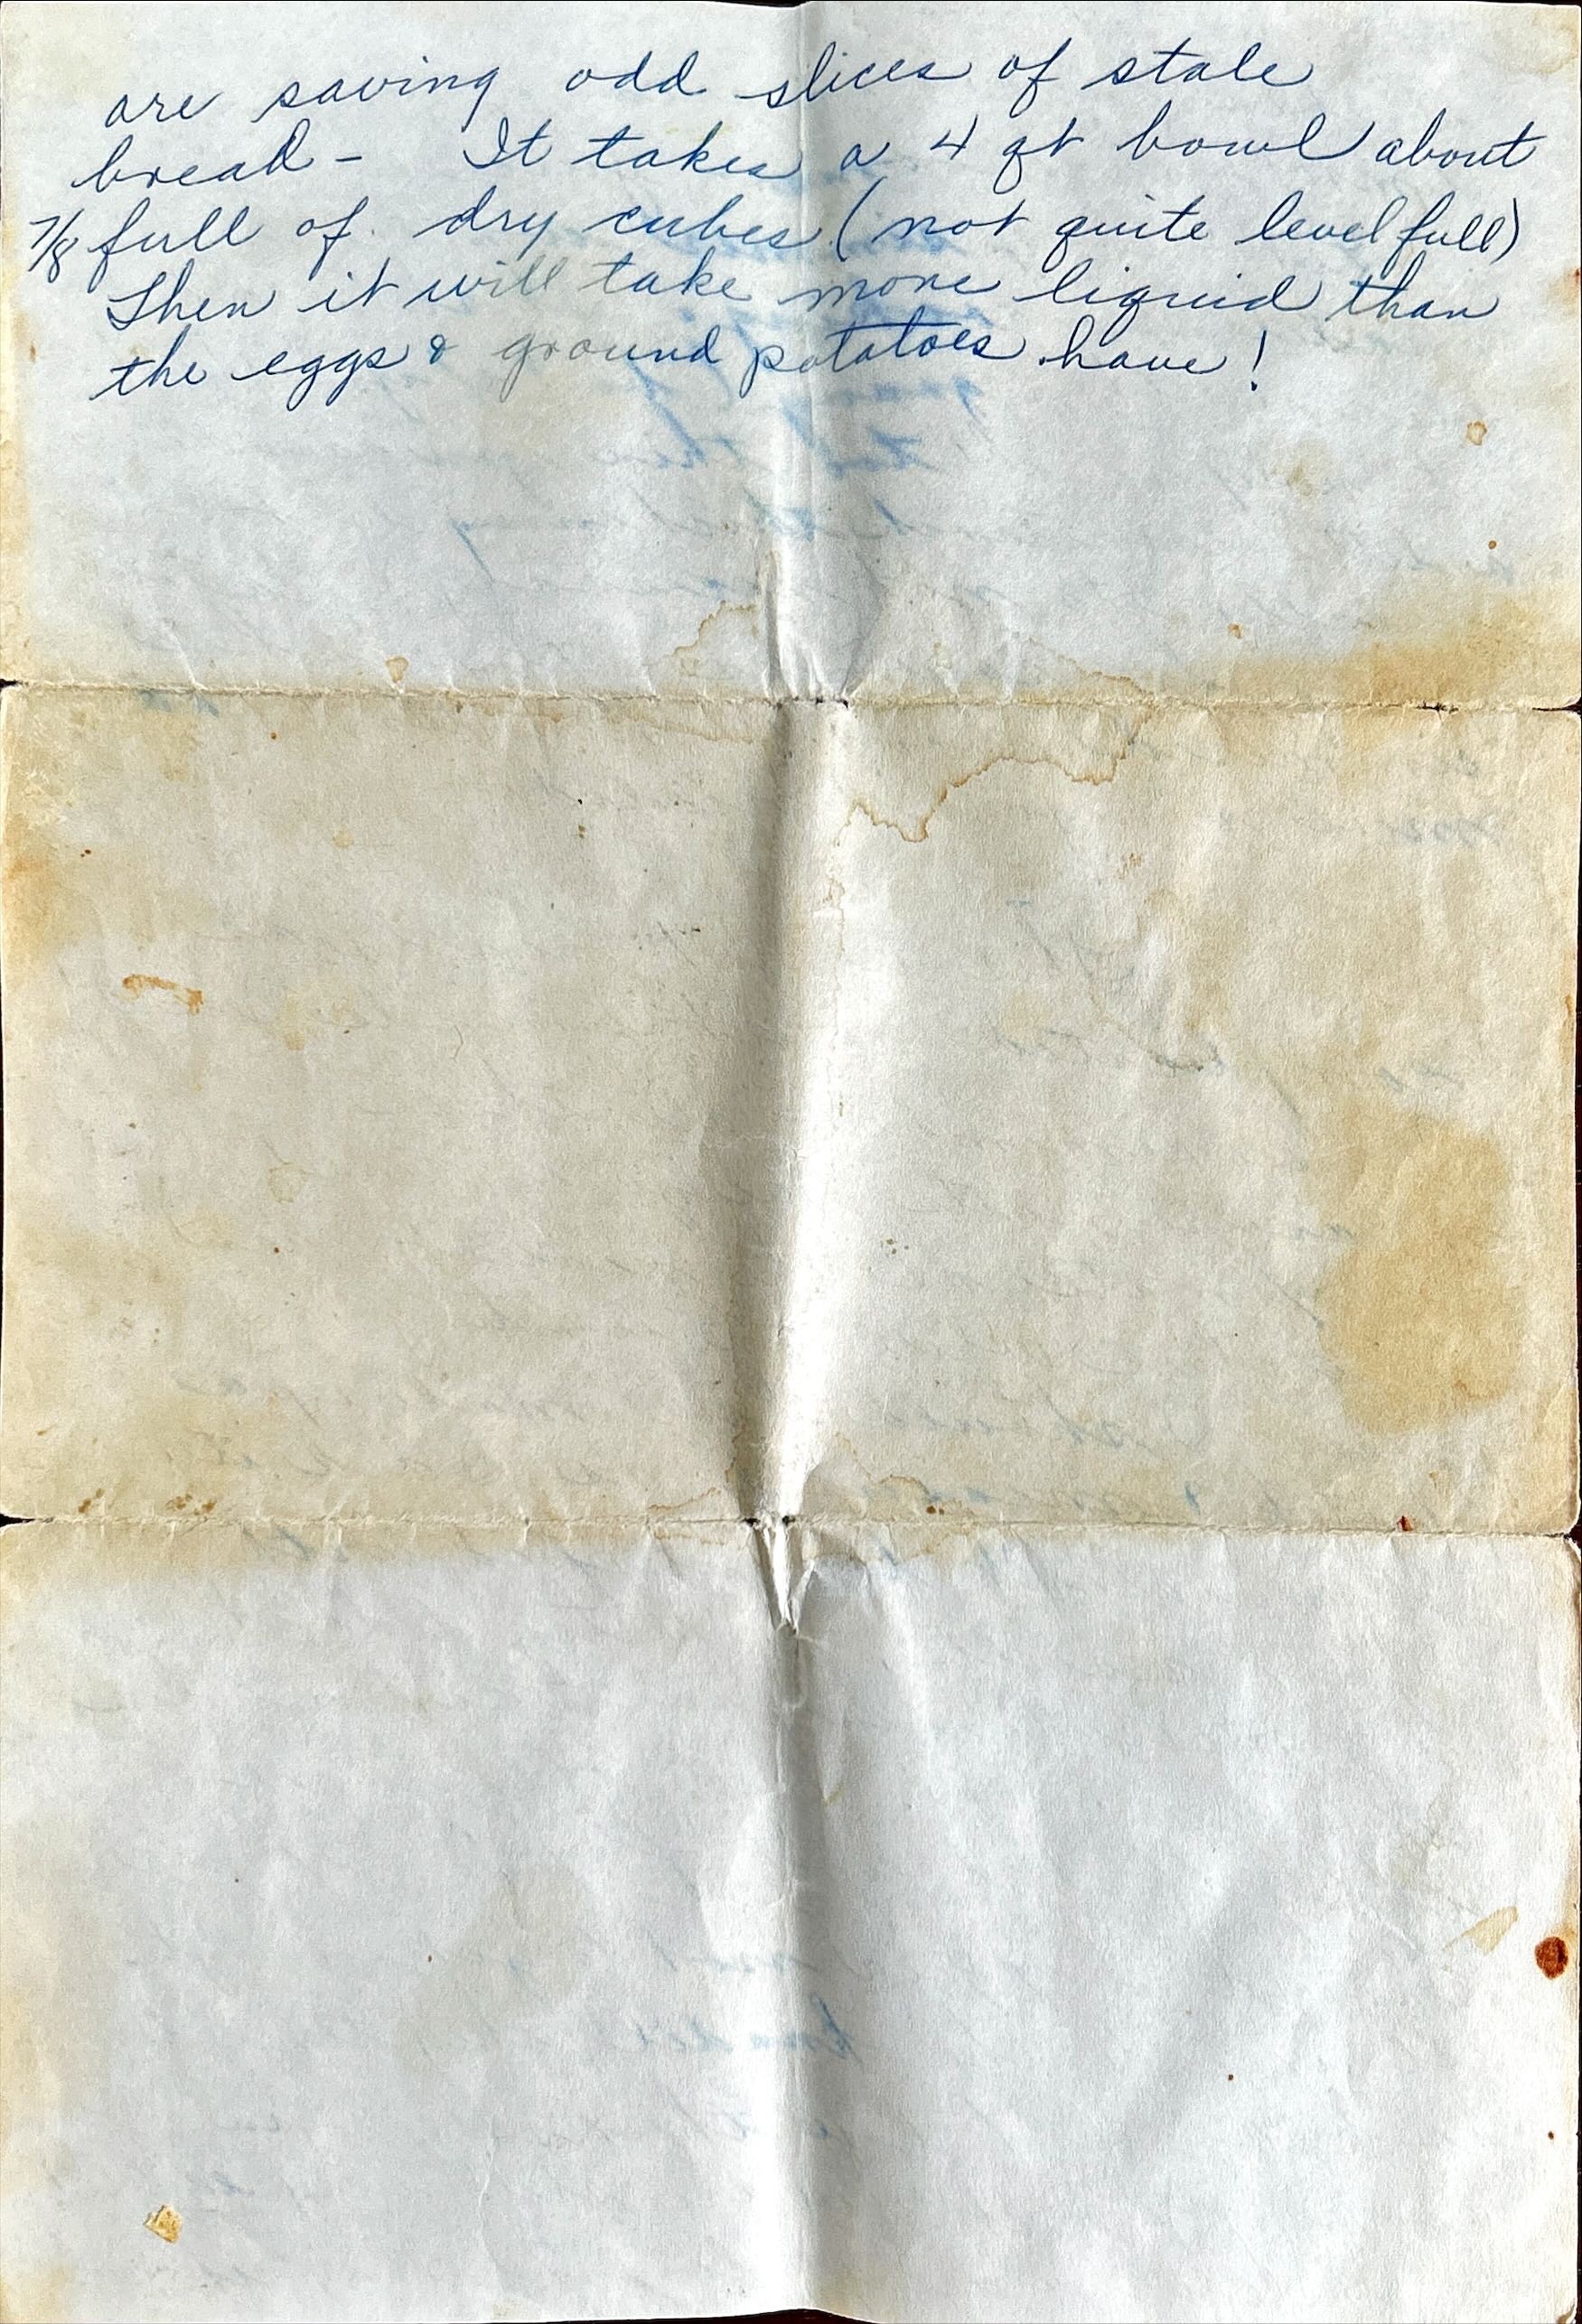 are saving odd slices of stale
bread - It takes a 4 qt bowl about
7/8 full of dry cubes (not quite level full)
Then it will take more liquid than
the eggs & ground potatoes have!